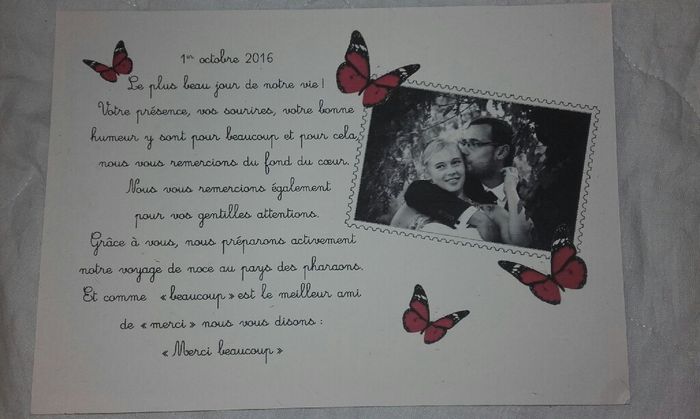 1er octobre 2016
Le plus beau jour de notre vie !
Votre présence, vos sourires, votre bonne
humeur y sont pour beaucoup et pour cela,
nous vous remercions du fond du cœur.
Nous vous remercions également
pour vos gentilles attentions.
Grâce à vous, nous préparons activement
notre voyage de noce au pays des pharaons.
Et comme « beaucoup » est le meilleur ami
de « merci » nous vous disons :
« Merci beaucoup »